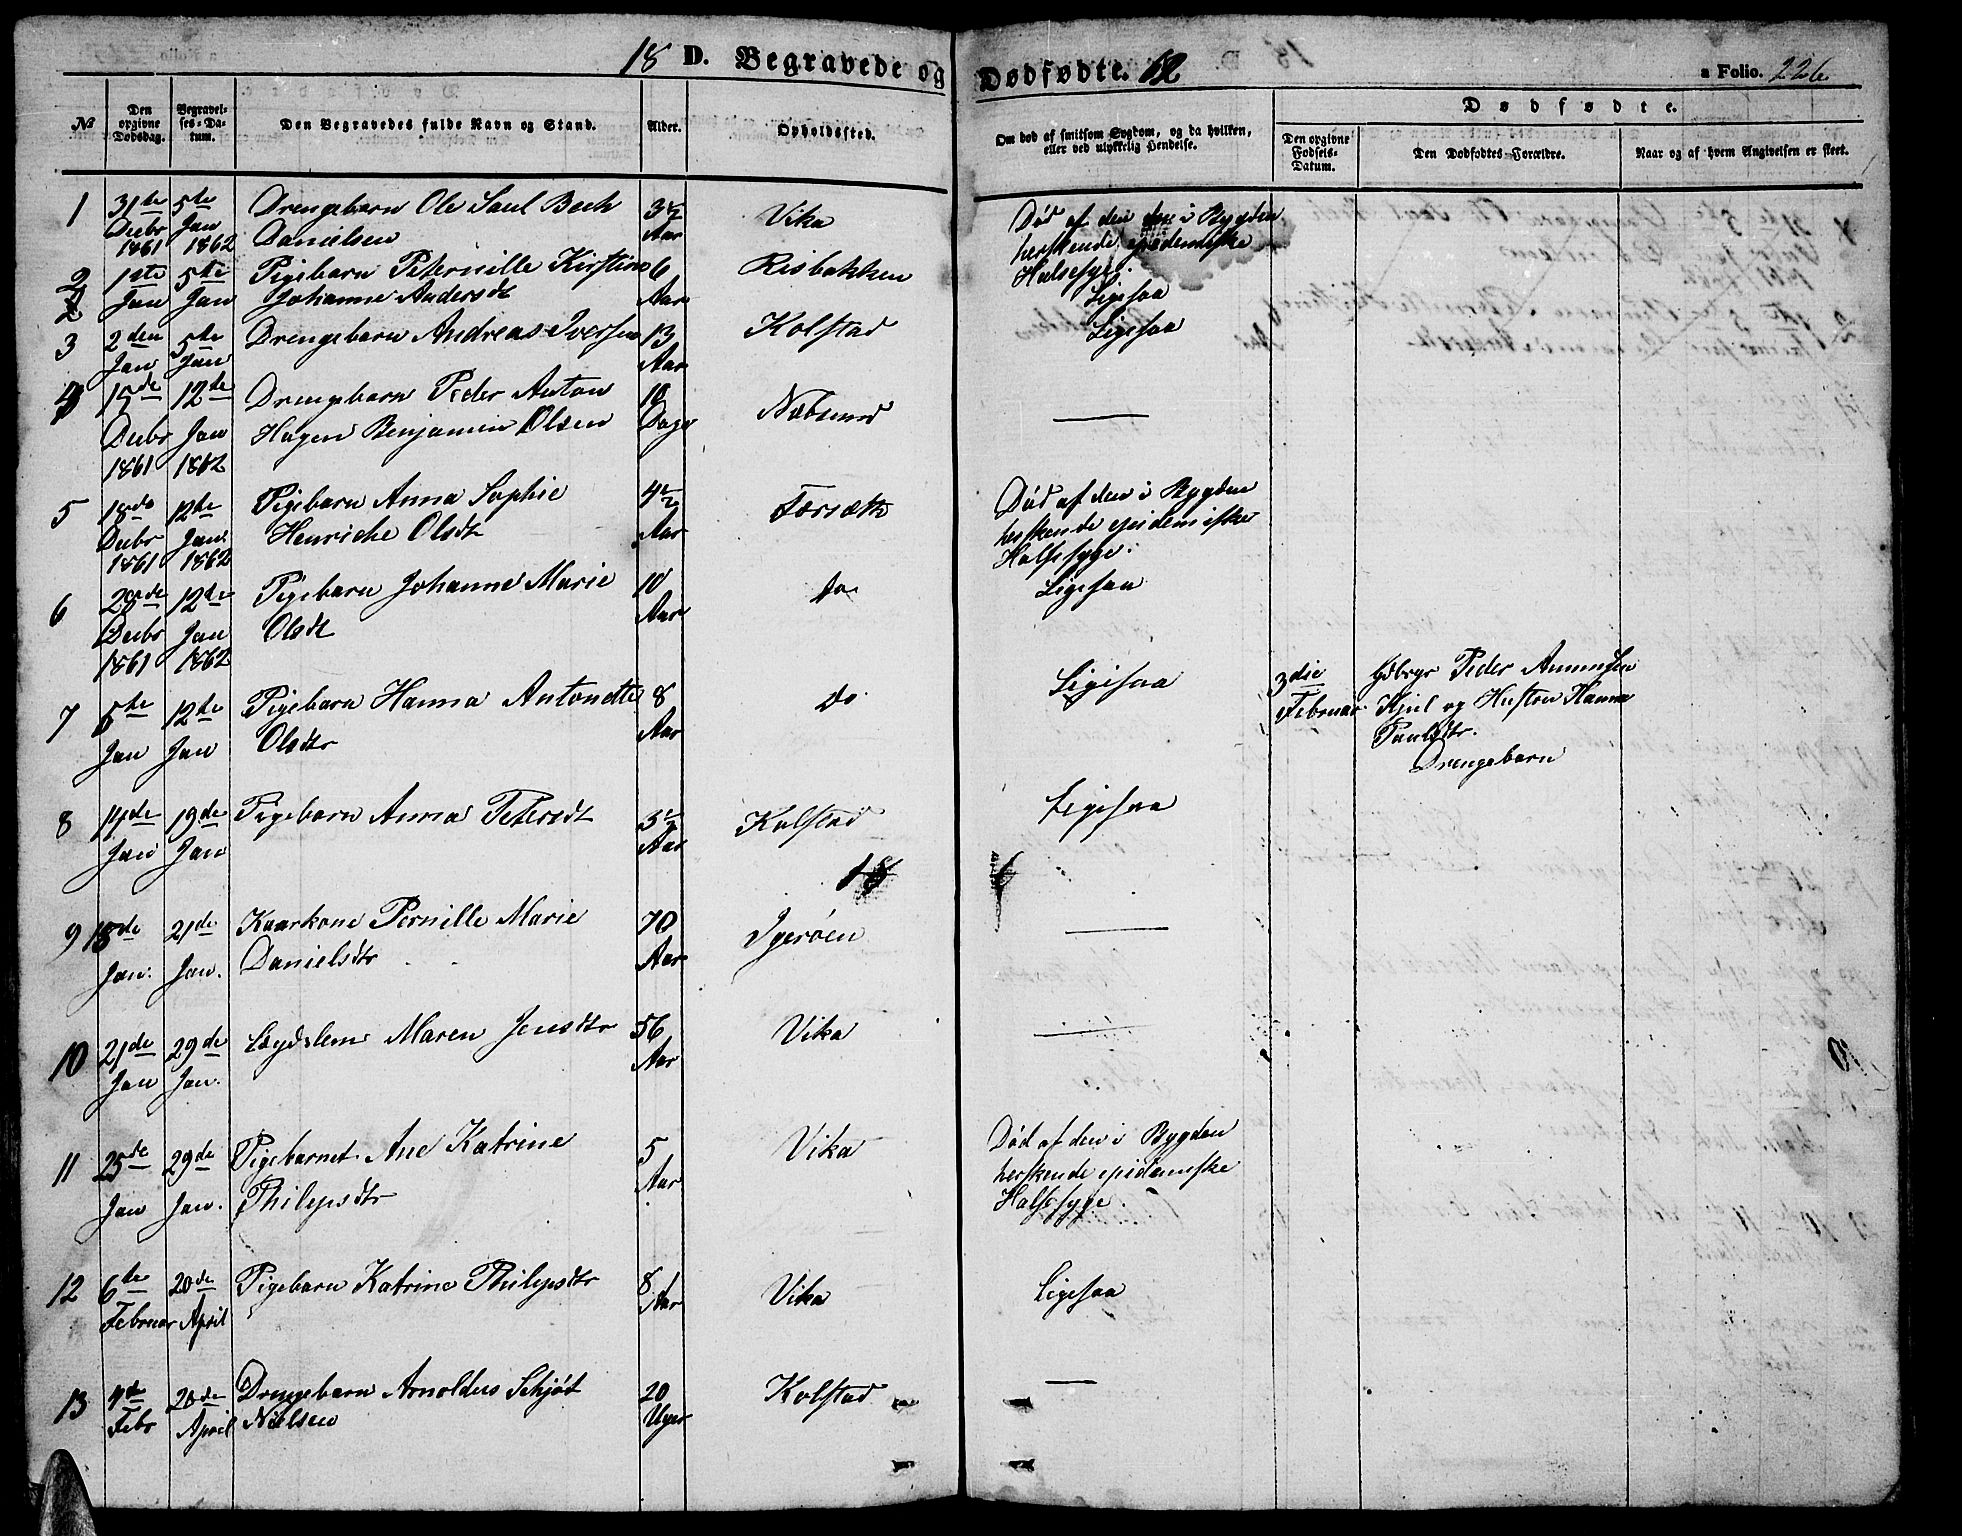 18 D. Begravede og Dødfødte. 62
a Folio. 226
№
Den opgivne Dødsdag.
Begravelses-Datum.
Den Begravedes fulde Navn og Stand.
Alder.
Opholdssted.
Om død af smitsom Sygdom, og da hvilken, eller ved ulykkelig Hendelse.
Dødfødte.
Den opgivne Fødsels-Datum.
Den Dødfødtes Forældre.
Naar og af hvem Angivelsen er skeet.
1 31te 5te Drengebarn Ole Saul Bech 3½ Vika Død af den i Bygden
Decbr Jan Danielsen Aar herskende epidemiske
1861 1862 Halsesyge.
2 1ste 5te Pigebarn Peternille Kirstine 6 Risbakken
Jan Jan Johanne Andersdt Aar Ligesaa
3 2den 5te Drengebarn Andreas Iversen 13 Kolstad Ligesaa
Jan Jan Aar
4 15de 12te Drengebarn Peder Anton 18 Næbsund —
Decbr Jan Hagen Benjamin Olsen Dage
1861 1862
5 18de 12te Pigebarn Anna Sophie 4½ Forsæth Død af den i Bygden
Decbr Jan Henriche Olsdt Aar herskende epidemiske
1861 1862 Halsesyge.
6 12te Pigebarn Johanne Marie 10 do Ligesaa
Decbr Jan Olsdt Aar
1861 1862
7 5te 12te Pigebarn Hanna Antonette 8 do Ligesaa
Jan Jan Olsdtr Aar
3die Februar
Gdbrgr Peder
og Hustru Hanna
Paulsdtr.
Drengebarn
8 14de 19de Pigebarn Anna Petersdt 3½ Kolstad Ligesaa
Jan Jan Aar
9 18de 21de Kaarkone Pernille Marie 70 Igerøen —
Jan. Jan. Danielsdtr Aar
10 21de 29de Lægdslem Maren Jensdtr 56 Vika —
Jan Jan. Aar
11 25de 29de Pigebarnet Ane Katrine 5 Vika Død af den i Bygden
Jan Jan. Philipsdtr Aar herskende epidemiske
Halsesyge.
12 6te 20de Pigebarn Katrine Philipsdtr 8 Vika Ligesaa
Februar April Aar
13 20de Drengebarn Arnoldus Schjøt 20 Kolstad —
Febr April Nielsen Uger